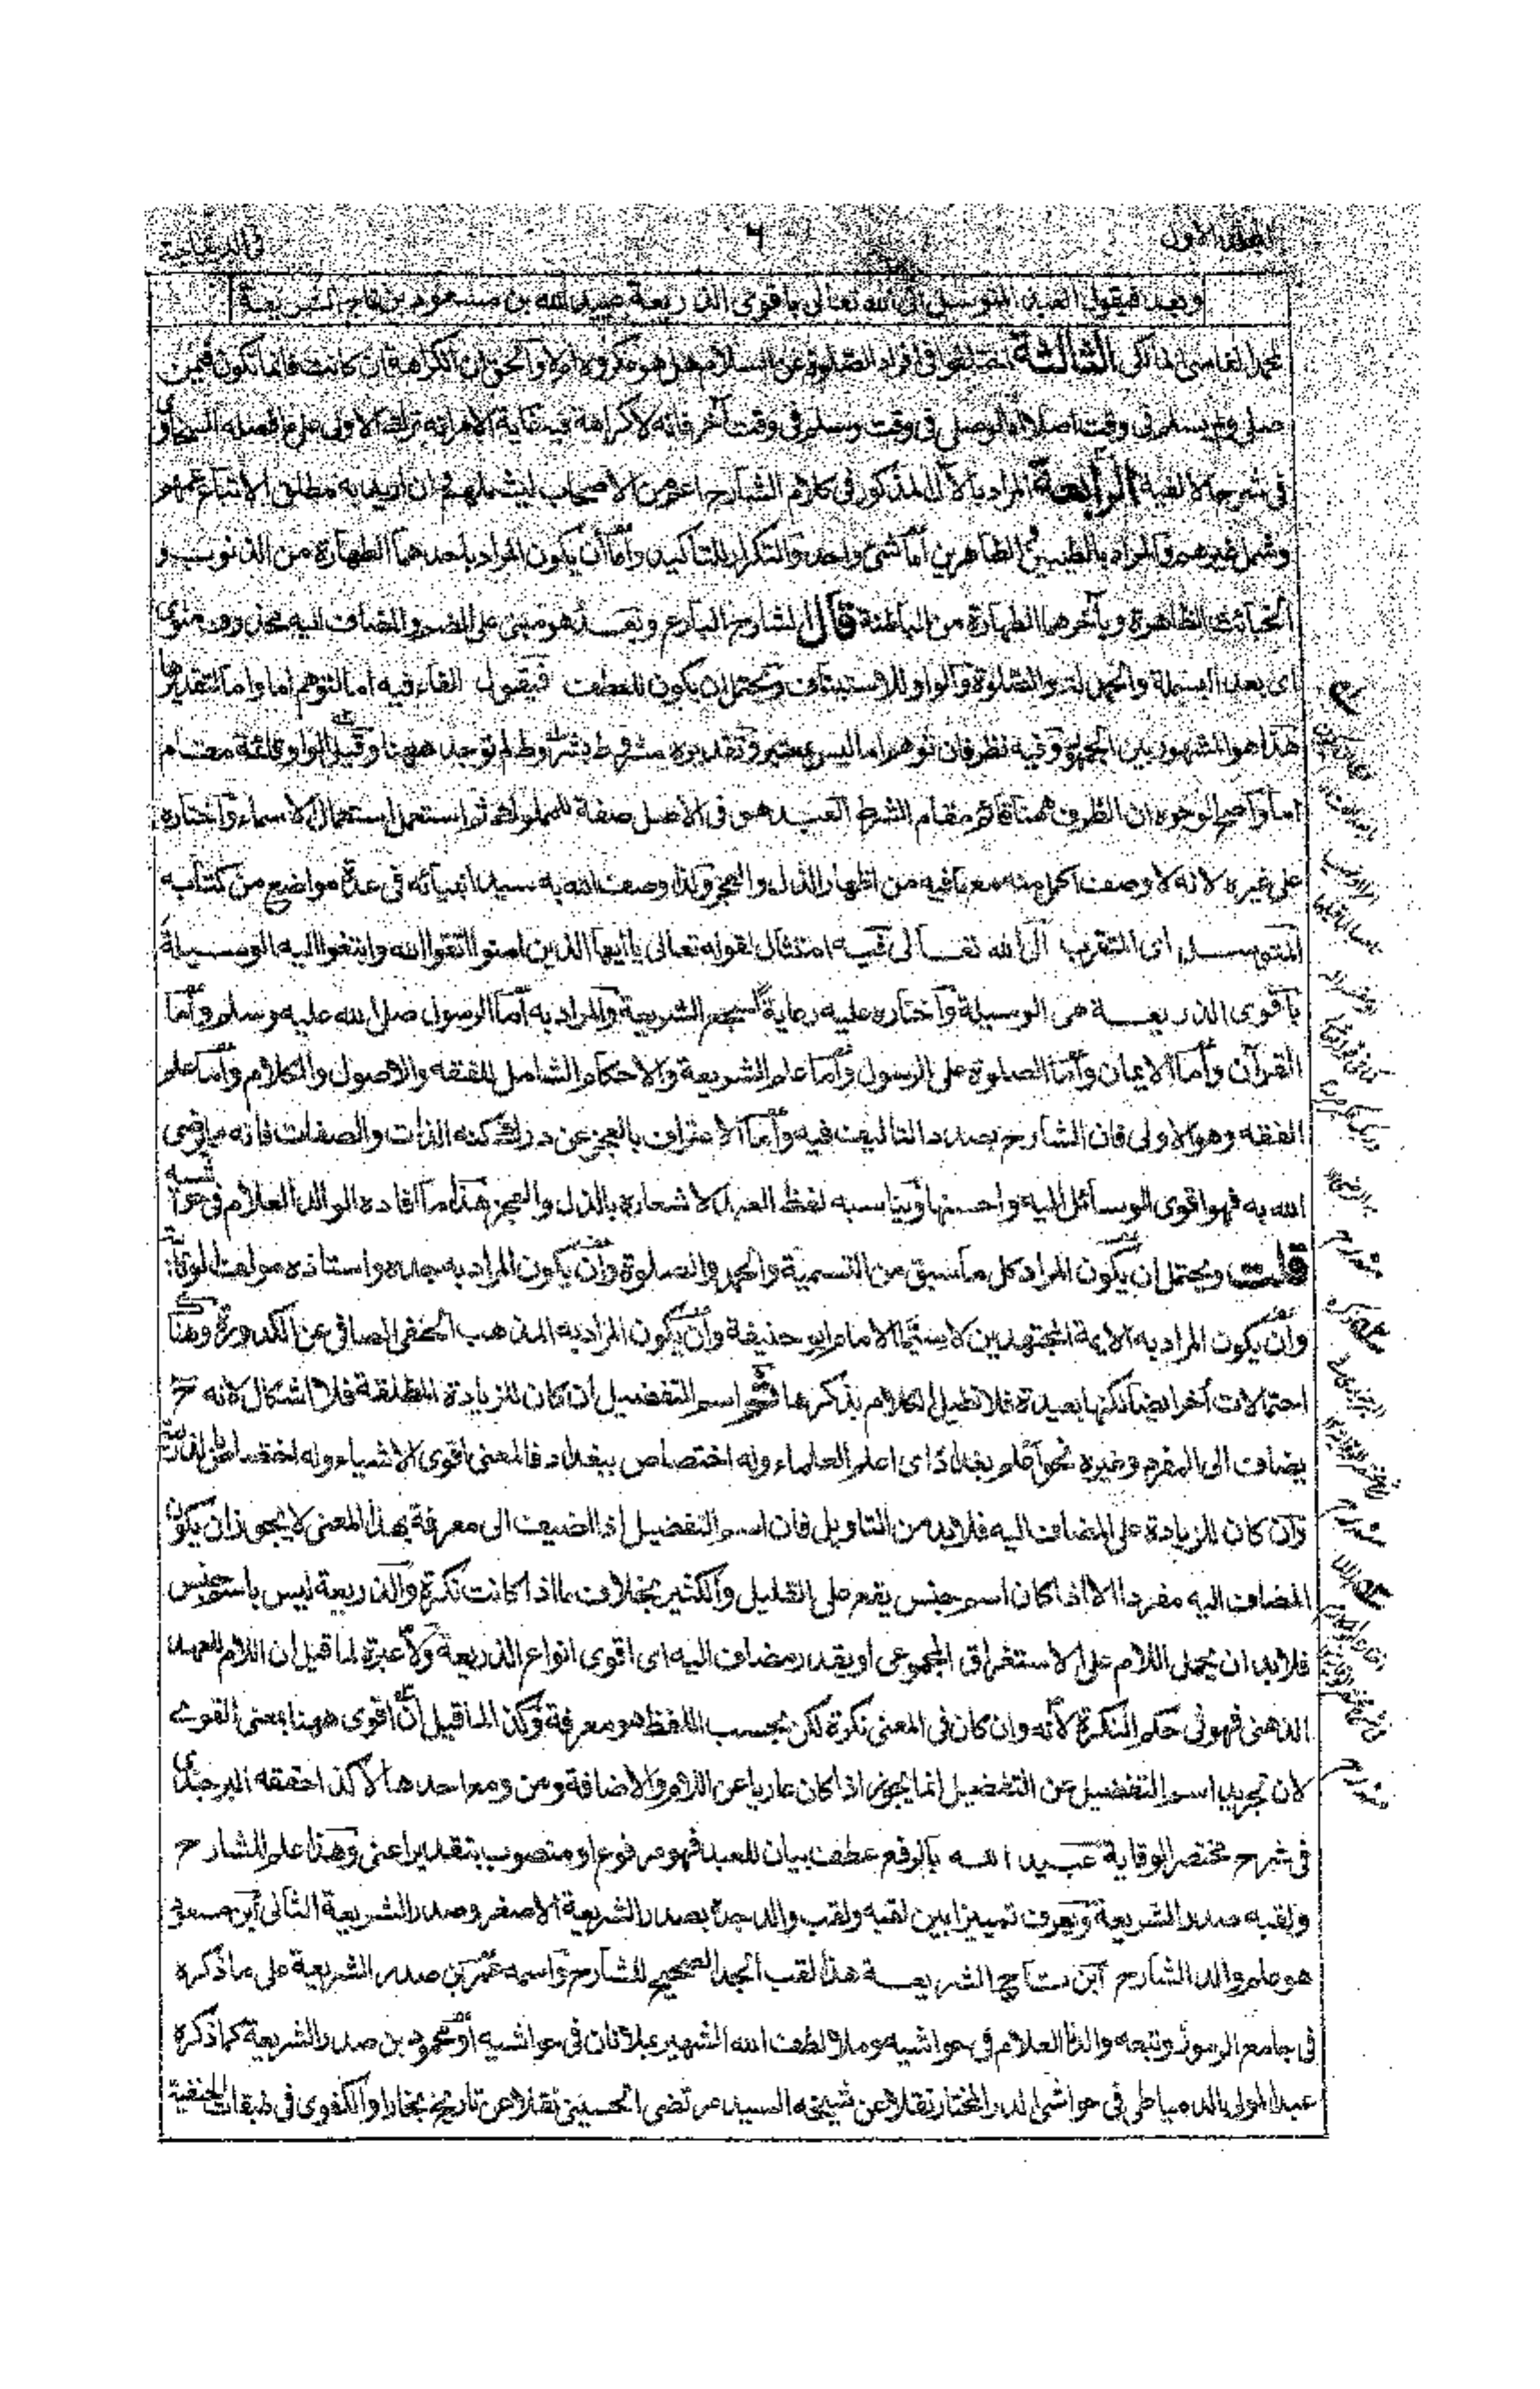 المجلد الاول
٦
في الديباجة
وبعد فيقول العبد المتوسل الى الله تعالى باقوى الذريعة عبيد الله بن مسعود بن تاج الشريعة
الفاسي المالكي الثالثة اختلفوا في افراد الصلوة عن السلام هل هو مكروه ام لا والحق ان الكراهة ان كانت فانما تكون فيمن
صلى ولم يسلم في وقت اصلا اما لو صلى في وقت وسلم في وقت آخر فانه لا كراهة فيه غاية الامر انه ترك الاولى على ما فصله السخاوي
في شرح الالفية الرابعة المراد بالآل المذكور في كلام الشارح اعم من الاصحاب ليشملهم ان اريد به مطلق الاتباع
وشمل غيرهم والمراد بالطيبين الطاهرين اما شئ واحد والتكرار للتاكيد واما ان يكون المراد باحدهما الطهارة من الذنوب و
الخبائث الظاهرة وبآخرهما الطهارة من الباطنة قال الشارح البارع وبعد هو مبني على الضم والمضاف اليه محذوف منوي
اى بعد البسملة والحمدلة والصلوة والواو للاستيناف ويحتمل ان يكون للعطف فيقول الفاء فيه اما لتوهم اما واما لتقديرها
هذا هو المشهور بين الجمهور وفيه نظر فان توهم اما ليس بمعتبر وتقديره مشروط بشروط لم توجد ههنا وقيل الواو قائمة مقام
اما واصح الوجوه ان الظرف ههنا قائم مقام الشرط العبد هو في الاصل صفة للمملوك ثم استعمل استعمال الاسماء واختاره
على غيره لانه لا وصف اكمل منه مع ما فيه من اظهار الذل والعجز وكذا وصف الله به سيد انبيائه في عدة مواضع من كتابه
المتوسل اى المتقرب الى الله تعالى فيه امتثال لقوله تعالى يا ايها الذين امنوا اتقوا الله وابتغوا اليه الوسيلة
باقوى الذريعة هى الوسيلة واختاره عليه رعاية لسجع الشريعة والمراد به اما الرسول صلى الله عليه وسلم واما
القرآن واما الايمان واما الصلوة على الرسول واما علم الشريعة والاحكام الشامل للفقه والاصول والكلام واما علم
الفقه وهو الاولى فان الشارح بصدد التاليف فيه واما الاعتراف بالعجز عن درك كنه الذات والصفات فانه مما رضى
الله به فهو اقوى الوسائل اليه واحسنها ويناسبه لفظ العبد لاشعاره بالذل والعجز هذا ما افاده الوالد العلام في حواشيه
قلت ويحتمل ان يكون المراد كل ما سبق من التسمية والحمد والصلوة وان يكون المراد به جده واستاذه مولف الوقاية
وان يكون المراد به الايمة المجتهدين لا سيما الامام ابو حنيفة وان يكون المراد به المذهب الحنفي الصافي عن الكدورة وهنا
احتمالات أخر ايضا لكنها بعيدة فلا نطيل الكلام بذكرها ثم اسم التفضيل ان كان للزيادة المطلقة فلا اشكال لانه ح
يضاف الى المفرد وغيره نحو اعلم بغداد اى اعلم العلماء وله اختصاص ببغداد فالمعنى اقوى الاشياء وله اختصاص
وان كان للزيادة على المضاف اليه فلا بد من التاويل فان اسم التفضيل اذا اضيف الى معرفة بهذا المعنى لا يجوز ان يكون
المضاف اليه مفردا الا اذا كان اسم جنس يقع على القليل والكثير بخلاف ما اذا كانت نكرة والذريعة ليس باسم جنس
فلا بد ان يحمل اللام على الاستغراق المجموعى او يقدر مضاف اليه اى اقوى انواع الذريعة ولا عبرة لما قيل ان اللام للعهد
الذهنى فهو في حكم النكرة لانه وان كان في المعنى نكرة لكن بحسب اللفظ هو معرفة وكذا لما قيل ان اقوى ههنا بمعنى القوى
لان تجريد اسم التفضيل عن التفضيل انما يجوز اذا كان عاريا عن اللام والاضافة ومن ومع احدها لا كذا حققه البرجندى
في شرح مختصر الوقاية عبيد الله بالرفع عطف بيان للعبد فهو مرفوع او منصوب بتقدير اعنى وهذا علم الشارح
ولقبه صدر الشريعة ويعرف تمييزا بين لقبه ولقب والد جده بصدر الشريعة الاصغر وصدر الشريعة الثانى ابن مسعود
هو علم والد الشارح ابن تاج الشريعة هذا لقب الجد الصحيح للشارح واسمه عمر بن صدر الشريعة على ما ذكره
في جامع الرموز وتبعه والدنا العلام في حواشيه وملا لطف الله الشهير بملا نان في حواشيه او محمود بن صدر الشريعة كما ذكره
عبد المولى الدمياطى في حواشى الدر المختار نقلا عن شيخه السيد مرتضى الحسينى نقلا عن تاريخ بخارا والكفوى في طبقات الحنفية